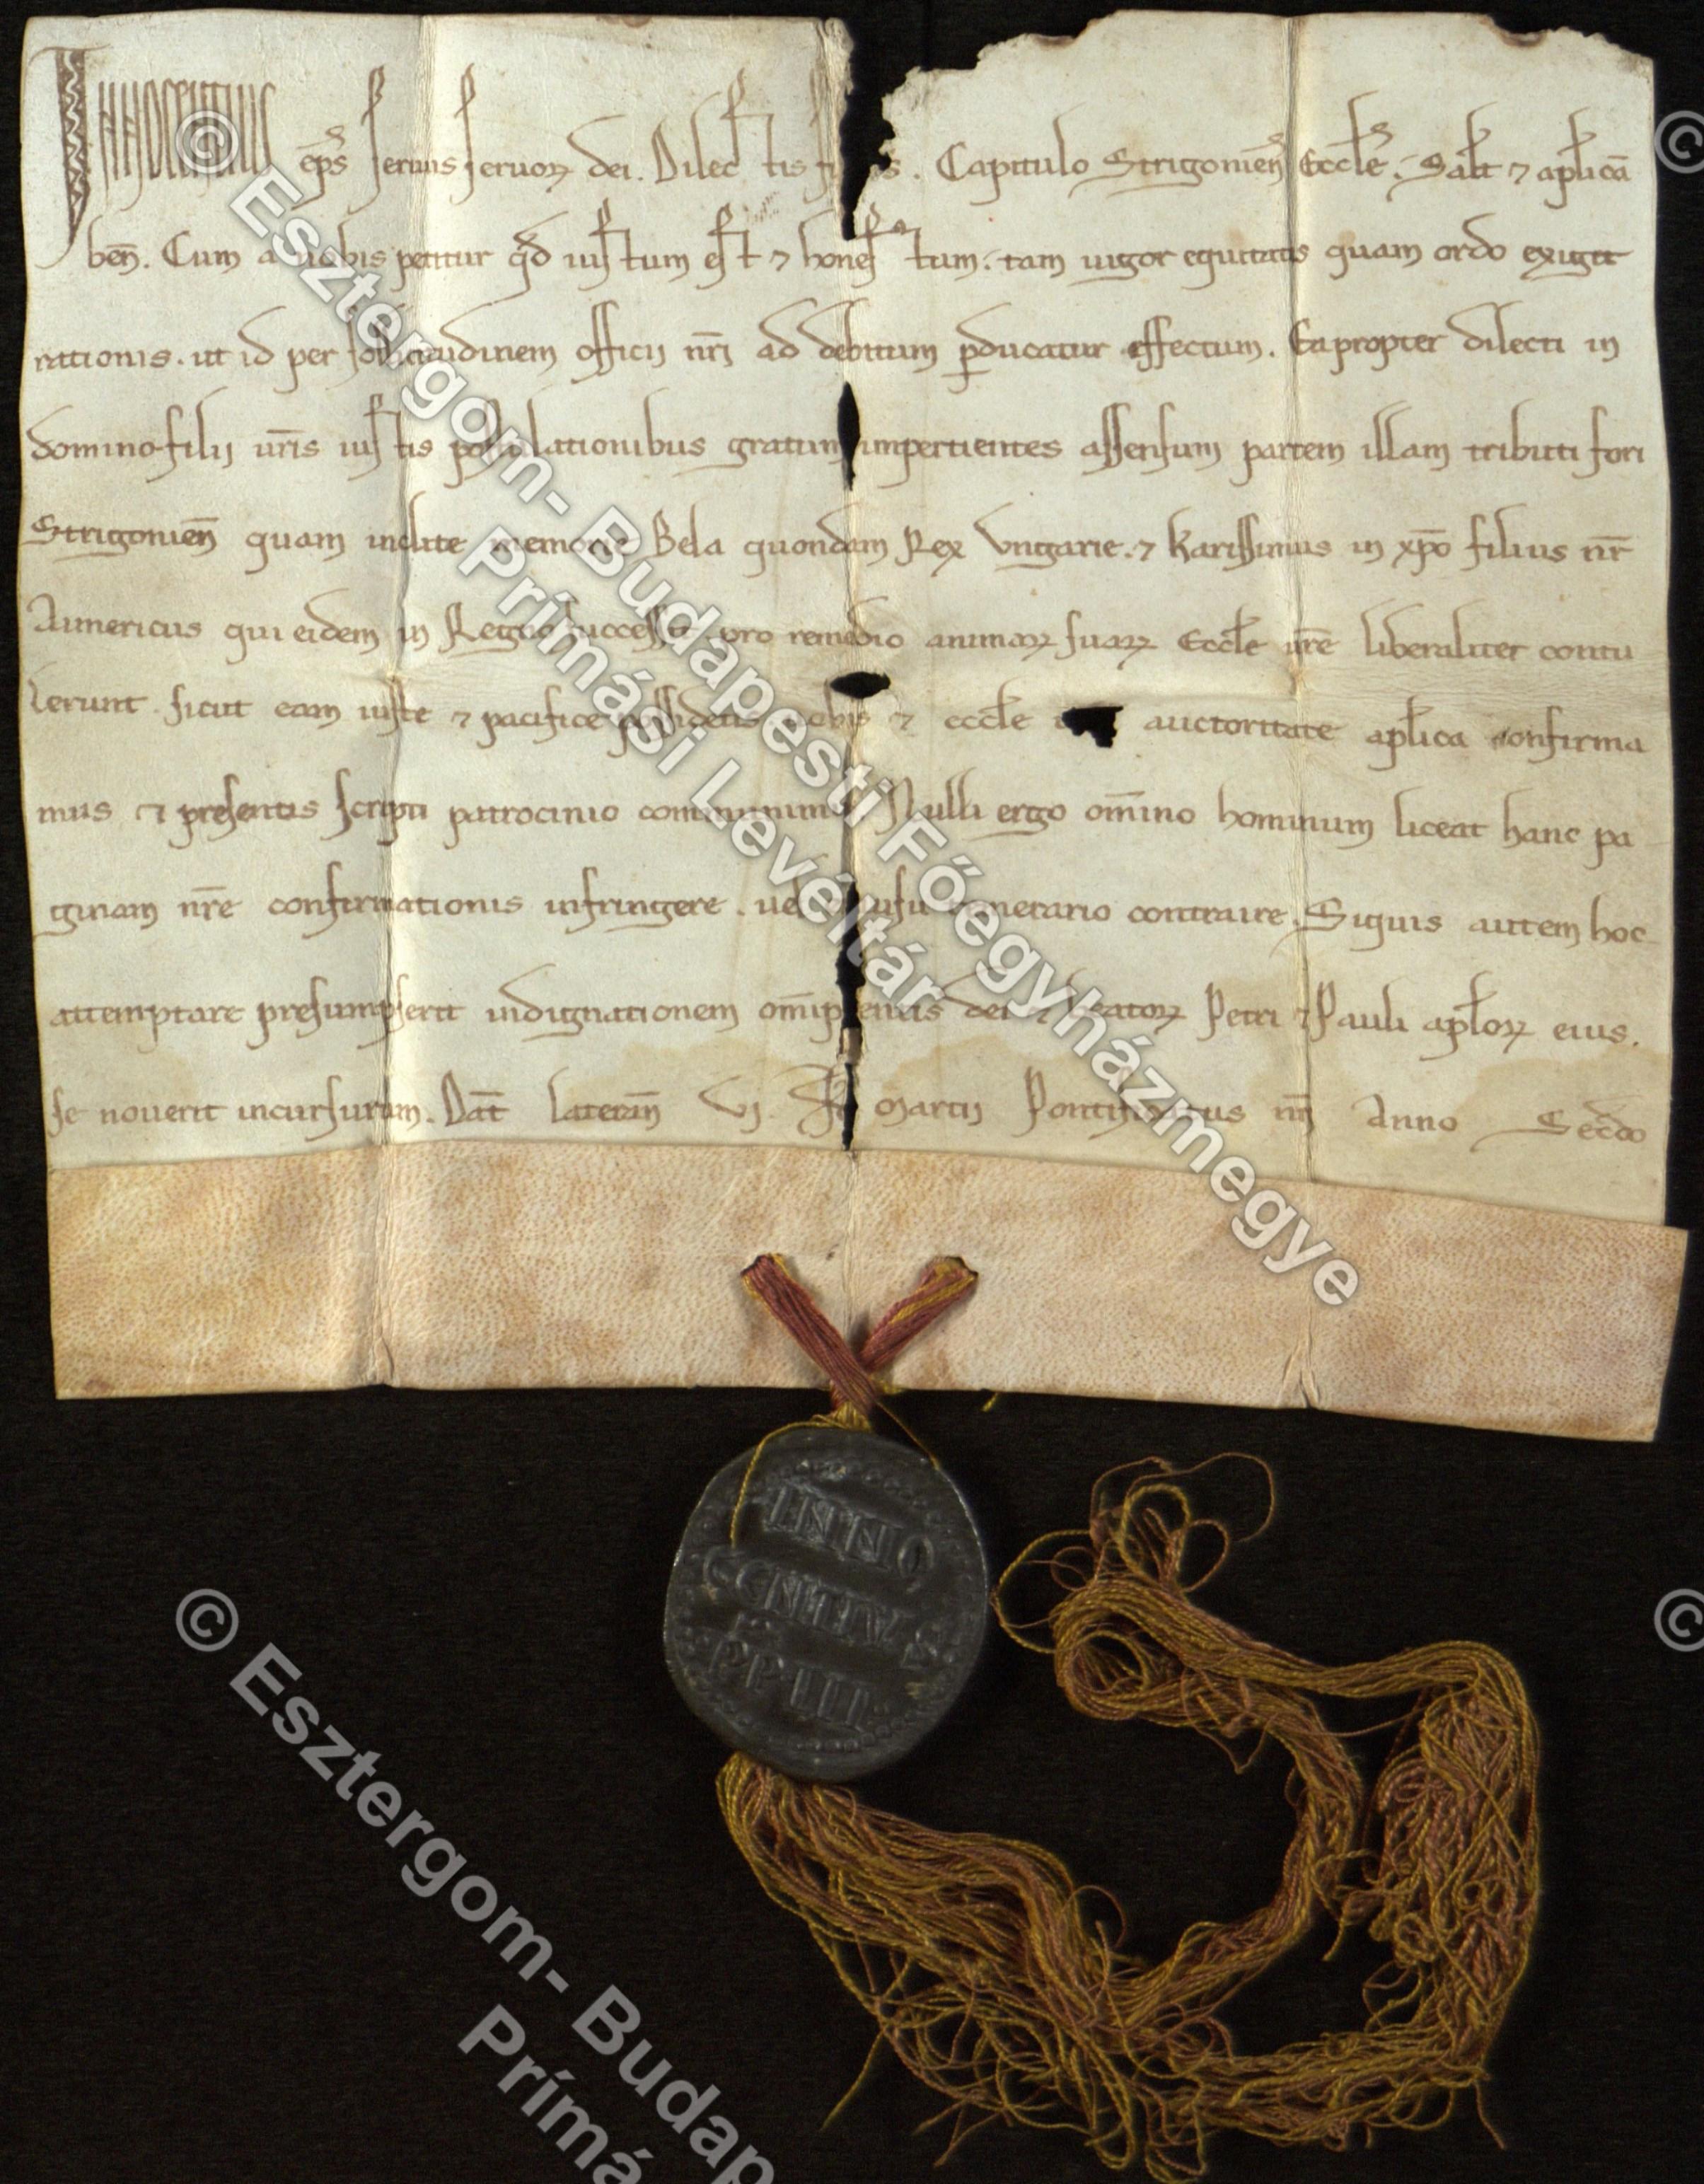 INNOCENTIUS ep̄s seruus seruoꝝ dei. Dilectis fi s. Capitulo Strigonien̄ Eccl̄e. Sal̄t ⁊ apl̄icā
ben̄. Cum a nobis petitur qd̄ iustum est ⁊ honestum. tam uigor equitatis quam ordo exigit
rationis. ut id per sollicitudinem officij nr̄j ad debitum ꝑducatur effectum. Eapropter dilecti in
domino filij ur̄is iustis postulationibus gratum impertientes assensum partem illam tributi fori
Strigonien̄ quam inclite memorie Bela quondam Rex Vngarie. ⁊ karissimus in xp̄o filius nr̄
Aimericus qui eidem in Regno successit pro remedio animaꝝ suaꝝ Eccl̄e ur̄e liberaliter contu
lerunt. sicut eam iuste ⁊ pacifice possidetis uobis ⁊ eccl̄e auctoritate apl̄ica confirma
mus ⁊ presentis scripti patrocinio communimus. Nulli ergo om̄ino hominum liceat hanc pa
ginam nr̄e confirmationis infringere. uel ausu temerario contraire. Siquis autem hoc
attemptare presumpserit indignationem om̄ipotentis dei ⁊ beatoꝝ Petri ⁊ Pauli apl̄oꝝ eius.
se nouerit incursurum. Dat̄ Lateran̄ vj. kl̄ Martij Pontificatus nr̄j Anno Secd̄o
INNO
CENTIVS
PP III
© Esztergom- Budapesti Főegyházmegye
Prímási Levéltár
©
© Esztergom- Budap
Prímá
©